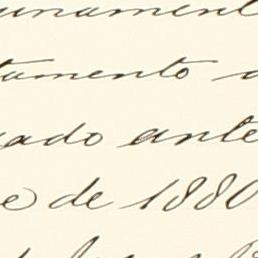 unament
tamento
ado ante
e de 1880